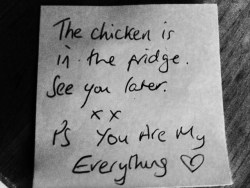 The chicken is
in the fridge.
See you later.
x x
PS You Are My
Everything ♡